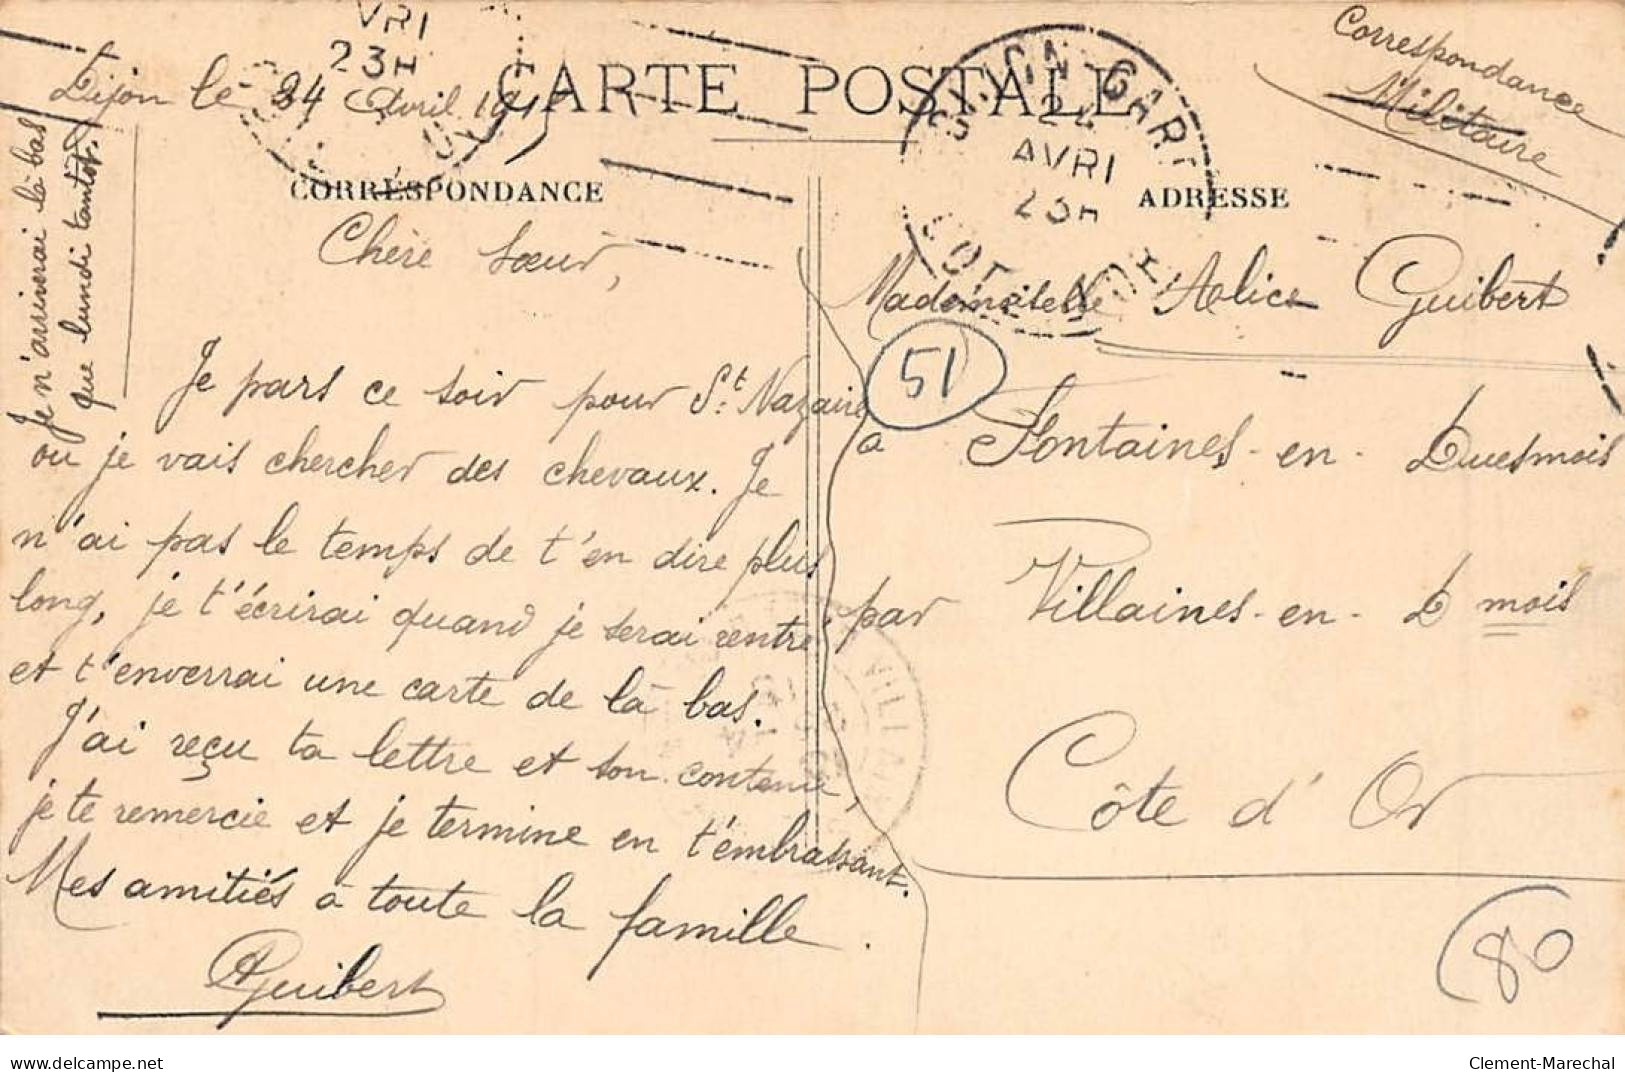 CARTE POSTALE
Correspondance
Militaire
Dijon le 24 Avril 191
CORRESPONDANCE
Chère Sœur,
Je pars ce soir pour St. Nazaire
ou je vais chercher des chevaux. Je
n'ai pas le temps de t'en dire plus
long, je t'écrirai quand je serai rentré
et t'enverrai une carte de là bas.
J'ai reçu ta lettre et son contenu,
je te remercie et je termine en t'embrassant.
Mes amitiés a toute la famille.
AGuibert
Je n'arriverai là bas
que lundi tantot.
VRI
23H
DIJON-GARE
24
AVRI
23H
COTE D'OR
ADRESSE
Mademoiselle Alice Guibert
51
a Fontaines-en-Duesmois
par Villaines-en-D mois
Côte d'Or
80
www.delcampe.net
Clement-Marechal